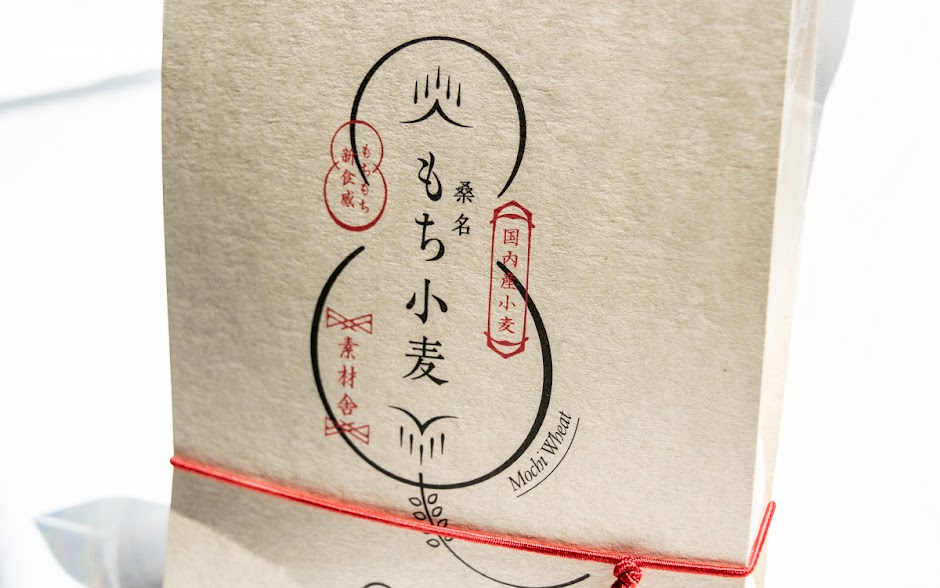 桑名
もち小麦
もちもち
新食感
国内産小麦
素材舎
Mochi Wheat